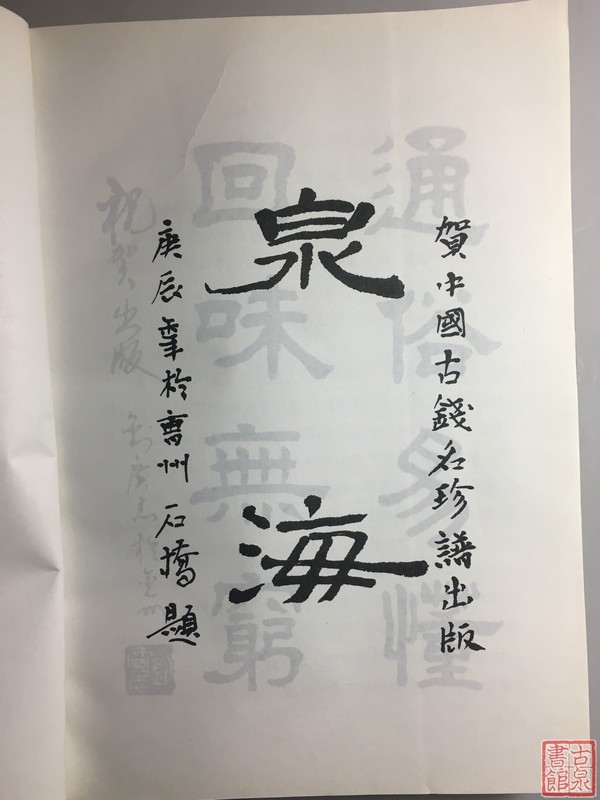 賀中國古錢名珍譜出版
泉海
庚辰年於曹州石橋題
通俗易懂
回味無窮
祝贺出版
古泉書館